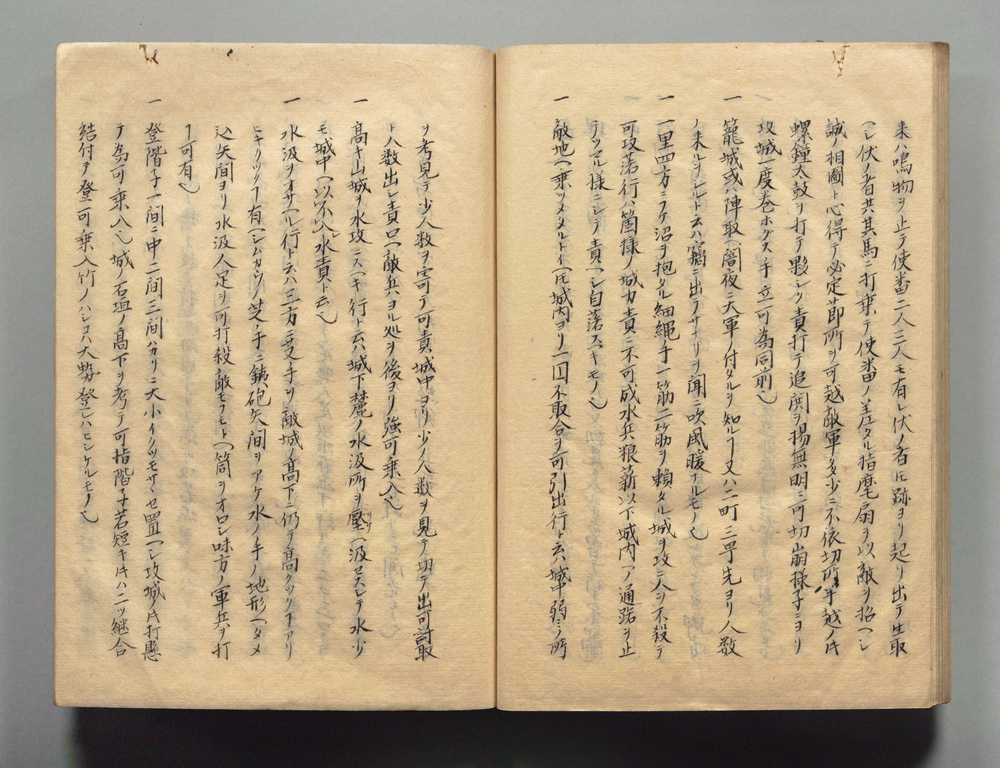 来ハ鳴物ヲ止テ使番二人三人モ有レ伏ノ者𪜈跡ヨリ起リ出テ生取
ヘシ伏ノ者共其馬ニ打乗テ使番ノ差タル指麾扇ヲ以敵ヲ招ヘシ
誠ノ相圖ト心得テ必定節所ヲ可越敵軍ノ多少ニ不依切所半越ノ時
螺鐘太鼓ヲ打テ夥シク責打テ追閧ヲ揚無明ニ可切崩様子ニヨリ
攻城一度巻ホグス手立可為同前也
一 籠城或ハ陣取ヘ闇夜ニ大軍ノ付タルヲ知ルヿ又ハ二町三町先ヨリ人数
ノ来ルヲシルト云ハ窩ニ出ヲサナリヲ聞ニ吹風暖ナルモノ也
一 一里四方ニフケ沼ヲ抱タル細縄手一筋二筋ヲ頼タル城ヲ攻テ人ヲ不殺テ
可攻落行ハ箇様ノ城力責ニ不可成水兵粮薪以下城内ヘノ通路ヲ止
テツマル様ニシテ責ヘシ自落スヘキモノ也
一 敵地ヘ乗シメタルトイヘ𪜈城内ヨリ一囚不取合ヲ可引出行ト云ハ城中弱ミノ所
ヲ考見テ少人数ヲ寄テ可責城中ヨリ少ノ人数ヲ見テ切テ出可討取
ト人数出シ責口ヘ敵兵ハヨル処ヲ後ヨリ強可乗入也
一 高キ山城ヲ水攻ニスヘキ行ト云ハ城下麓ノ水汲所ヲ堅ヘ汲セスシテ水少
モ城中ヘ以不入水責ト云也
一 水汲ヲオサヘル行ト云ハ三方ニ受手ヲ敵城ノ高下ニ仍テ高クツクヿアリ
ヒキクツクヿ有ヘシムカツ芝ノ手ニ銕砲矢間ヲアケ水ノ手ノ地形ヘタメ
込矢間ヨリ水汲人足ヲ可打殺敵モフモトヘ筒ヲオロシ味方ノ軍兵ヲ打
ヿ可有也
一 登階子一間ニ中二間三間ハカリニ大小イクツモサセ置ヘシ攻城ノ時打懸
テ為可乗入也城ノ石垣ノ高下ヲ考テ可指階子若短キ時ハ二ツ継合
結付テ登可乗入竹ノハシコハ大勢登レハヒシケルモノ也